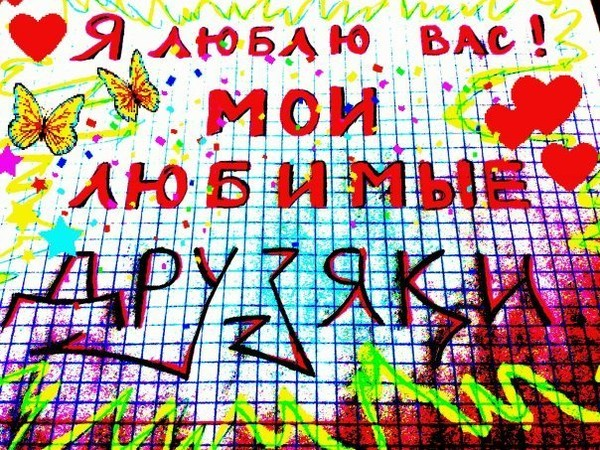 Я ЛЮБЛЮ ВАС!
МОИ
ЛЮБИМЫЕ
ДРУЗЯКИ